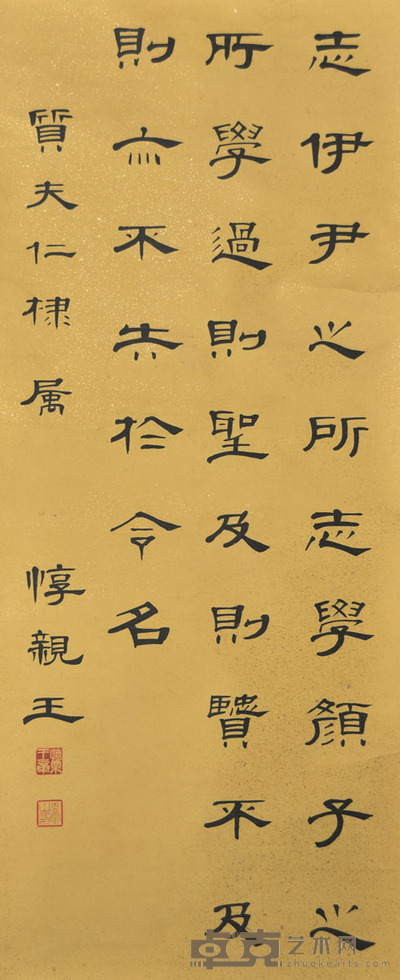 志伊尹之所志學顏子之
所學過則聖及則賢不及
則亦不失於令名
質夫仁棣属
惇親王
卓克艺术网
zhuokearts.com